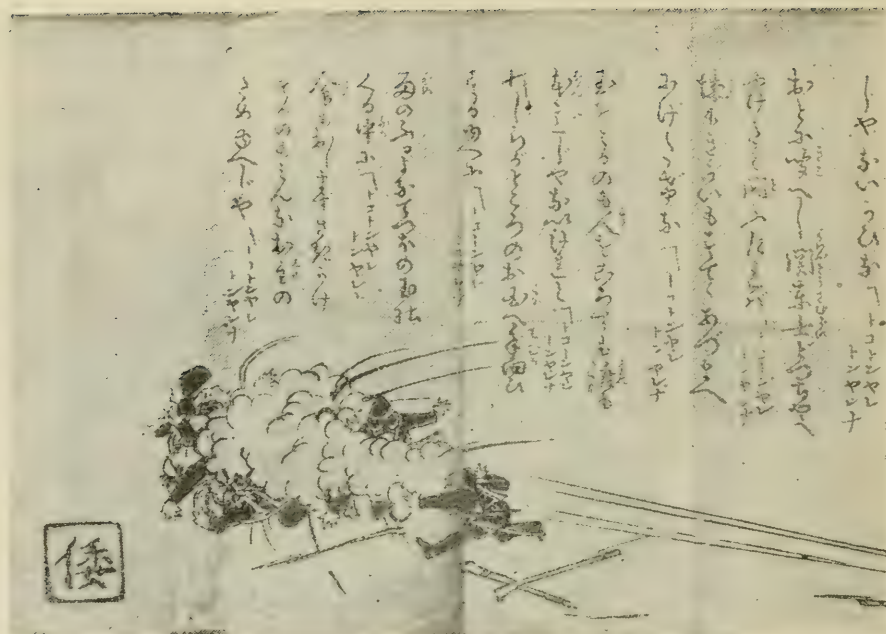 トコトンヤレ
トンヤレナ
おとに聞へし関東武士どつちへ
にげたと問ふたれば
城もきがいもすてゝあづまへ
にげたげな「トコトンヤレ
トンヤレナ
国をとるのも人をころすも誰も
本意じやないけれど「トコトンヤレ
トンヤレナ
わしらがところのお国へ手向ひ
する由へに「トコトンヤレ
トンヤレナ
雨のふるよなてつぽの玉の
くる中に「トコトンヤレ
トンヤレナ
命もおしまず先がけ
するのもみんなお主の
ため由へじや「トコトンヤレ
トンヤレナ
倭